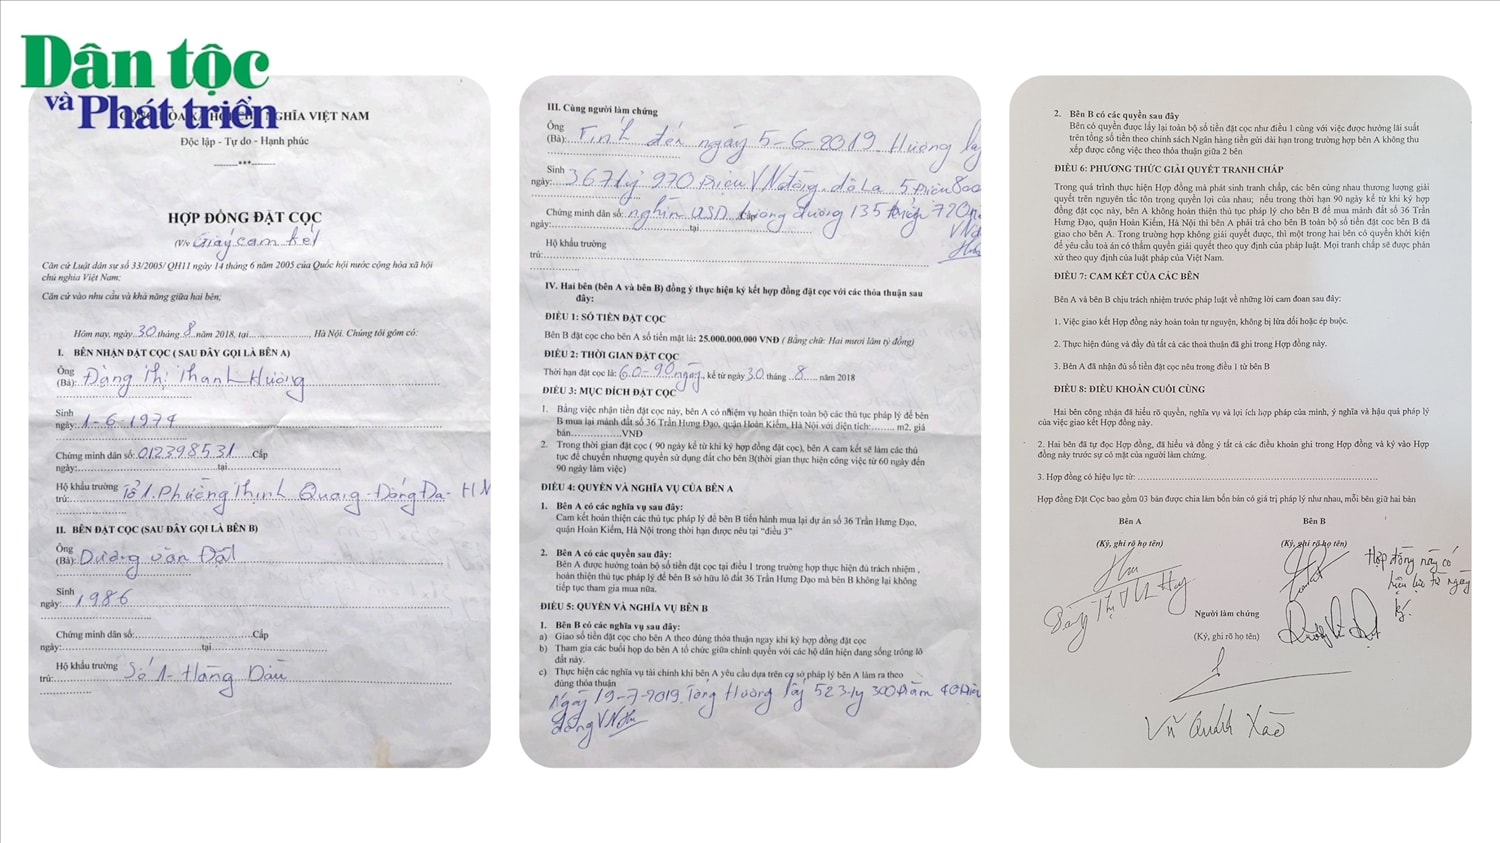 Dân tộc
và Phát triển
NGHĨA VIỆT NAM
Độc lập - Tự do - Hạnh phúc
--------***--------
HỢP ĐỒNG ĐẶT CỌC
(V/v Giấy cam kết
Căn cứ Luật dân sự số 33/2005/ QH11 ngày 14 tháng 6 năm 2005 của Quốc hội nước cộng hòa xã hội
chủ nghĩa Việt Nam;
Căn cứ vào nhu cầu và khả năng giữa hai bên;
Hôm nay, ngày 30 tháng 8 năm 2018, tại.................., Hà Nội. Chúng tôi gồm có:
I. BÊN NHẬN ĐẶT CỌC ( SAU ĐÂY GỌI LÀ BÊN A)
Ông
(Bà): Đặng Thị Thanh Hương
Sinh
ngày: 1-6-1974
Chứng minh dân số: 012398531 Cấp
ngày:..........................tại..........................
Hộ khẩu trường
trú: Tổ 1. Phường Thịnh Quang - Đống Đa - HN
II. BÊN ĐẶT CỌC (SAU ĐÂY GỌI LÀ BÊN B)
Ông
(Bà): Dương Văn Đạt
Sinh
ngày: 1986
Chứng minh dân số:..........................Cấp
ngày:..........................tại..........................
Hộ khẩu trường
trú: Số 1 - Hàng Dầu
III. Cùng người làm chứng
Ông
(Bà): Tính đến ngày 5-6-2019 Hương lấy
Sinh
ngày: 367 tỷ 970 triệu VN đồng. đô la 5 triệu 800
Chứng minh dân số: nghìn USD tương đương 135 tỷ 720
ngày:..........................tại.......................... VNĐ
Hộ khẩu trường
trú:..........................
IV. Hai bên (bên A và bên B) đồng ý thực hiện ký kết hợp đồng đặt cọc với các thỏa thuận sau
đây:
ĐIỀU 1: SỐ TIỀN ĐẶT CỌC
Bên B đặt cọc cho bên A số tiền mặt là: 25.000.000.000 VNĐ ( Bằng chữ: Hai mươi lăm tỷ đồng)
ĐIỀU 2: THỜI GIAN ĐẶT CỌC
Thời hạn đặt cọc là: 60-90 ngày, kể từ ngày 30 tháng 8 năm 2018
ĐIỀU 3: MỤC ĐÍCH ĐẶT CỌC
1. Bằng việc nhận tiền đặt cọc này, bên A có nhiệm vụ hoàn thiện toàn bộ các thủ tục pháp lý để bên
B mua lại mảnh đất số 36 Trần Hưng Đạo, quận Hoàn Kiếm, Hà Nội với diện tích:........ m2. giá
bán................VNĐ
2. Trong thời gian đặt cọc ( 90 ngày kể từ khi ký hợp đồng đặt cọc), bên A cam kết sẽ làm các thủ
tục để chuyển nhượng quyền sử dụng đất cho bên B(thời gian thực hiện công việc từ 60 ngày đến
90 ngày làm việc)
ĐIỀU 4: QUYỀN VÀ NGHĨA VỤ CỦA BÊN A
1. Bên A có các nghĩa vụ sau đây:
Cam kết hoàn thiện các thủ tục pháp lý để bên B tiến hành mua lại dự án số 36 Trần Hưng Đạo,
quận Hoàn Kiếm, Hà Nội trong thời hạn được nêu tại “điều 3”
2. Bên A có các quyền sau đây:
Bên A được hưởng toàn bộ số tiền đặt cọc tại điều 1 trong trường hợp thực hiện đủ trách nhiệm ,
hoàn thiện thủ tục pháp lý để bên B sở hữu lô đất 36 Trần Hưng Đạo mà bên B không lại không
tiếp tục tham gia mua nữa.
ĐIỀU 5: QUYỀN VÀ NGHĨA VỤ BÊN B
1. Bên B có các nghĩa vụ sau đây:
a) Giao số tiền đặt cọc cho bên A theo đúng thỏa thuận ngay khi ký hợp đồng đặt cọc
b) Tham gia các buổi họp do bên A tổ chức giữa chính quyền với các hộ dân hiện đang sống trông lô
đất này.
c) Thực hiện các nghĩa vụ tài chính khi bên A yêu cầu dựa trên cơ sở pháp lý bên A làm ra theo
đúng thỏa thuận
Ngày 19-7-2019. Tổng Hương lấy 523 tỷ 300
đồng VN
2. Bên B có các quyền sau đây
Bên có quyền được lấy lại toàn bộ số tiền đặt cọc như điều 1 cùng với việc được hưởng lãi suất
trên tổng số tiền theo chính sách Ngân hàng tiền gửi dài hạn trong trường hợp bên A không thu
xếp được công việc theo thỏa thuận giữa 2 bên
ĐIỀU 6: PHƯƠNG THỨC GIẢI QUYẾT TRANH CHẤP
Trong quá trình thực hiện Hợp đồng mà phát sinh tranh chấp, các bên cùng nhau thương lượng giải
quyết trên nguyên tắc tôn trọng quyền lợi của nhau; nếu trong thời hạn 90 ngày kể từ khi ký hợp
đồng đặt cọc này, bên A không hoàn thiện thủ tục pháp lý cho bên B để mua mảnh đất số 36 Trần
Hưng Đạo, quận Hoàn Kiếm, Hà Nội thì bên A phải trả cho bên B toàn bộ số tiền đặt cọc bên B đã
giao cho bên A. Trong trường hợp không giải quyết được, thì một trong hai bên có quyền khởi kiện
để yêu cầu toà án có thẩm quyền giải quyết theo quy định của pháp luật. Mọi tranh chấp sẽ được phán
xử theo quy định của luật pháp của Việt Nam.
ĐIỀU 7: CAM KẾT CỦA CÁC BÊN
Bên A và bên B chịu trách nhiệm trước pháp luật về những lời cam đoan sau đây:
1. Việc giao kết Hợp đồng này hoàn toàn tự nguyện, không bị lừa dối hoặc ép buộc.
2. Thực hiện đúng và đầy đủ tất cả các thoả thuận đã ghi trong Hợp đồng này.
3. Bên A đã nhận đủ số tiền đặt cọc nêu trong điều 1 từ bên B
ĐIỀU 8: ĐIỀU KHOẢN CUỐI CÙNG
Hai bên công nhận đã hiểu rõ quyền, nghĩa vụ và lợi ích hợp pháp của mình, ý nghĩa và hậu quả pháp lý
của việc giao kết Hợp đồng này.
2. Hai bên đã tự đọc Hợp đồng, đã hiểu và đồng ý tất cả các điều khoản ghi trong Hợp đồng và ký vào Hợp
đồng này trước sự có mặt của người làm chứng.
3. Hợp đồng có hiệu lực từ: ..........................
Hợp đồng Đặt Cọc bao gồm 03 bản được chia làm bốn bản có giá trị pháp lý như nhau, mỗi bên giữ hai bản
Bên A Bên B
(Ký, ghi rõ họ tên) (Ký, ghi rõ họ tên)
Hợp đồng này có
hiệu lực từ ngày
ký.
Người làm chứng
(Ký, ghi rõ họ tên)